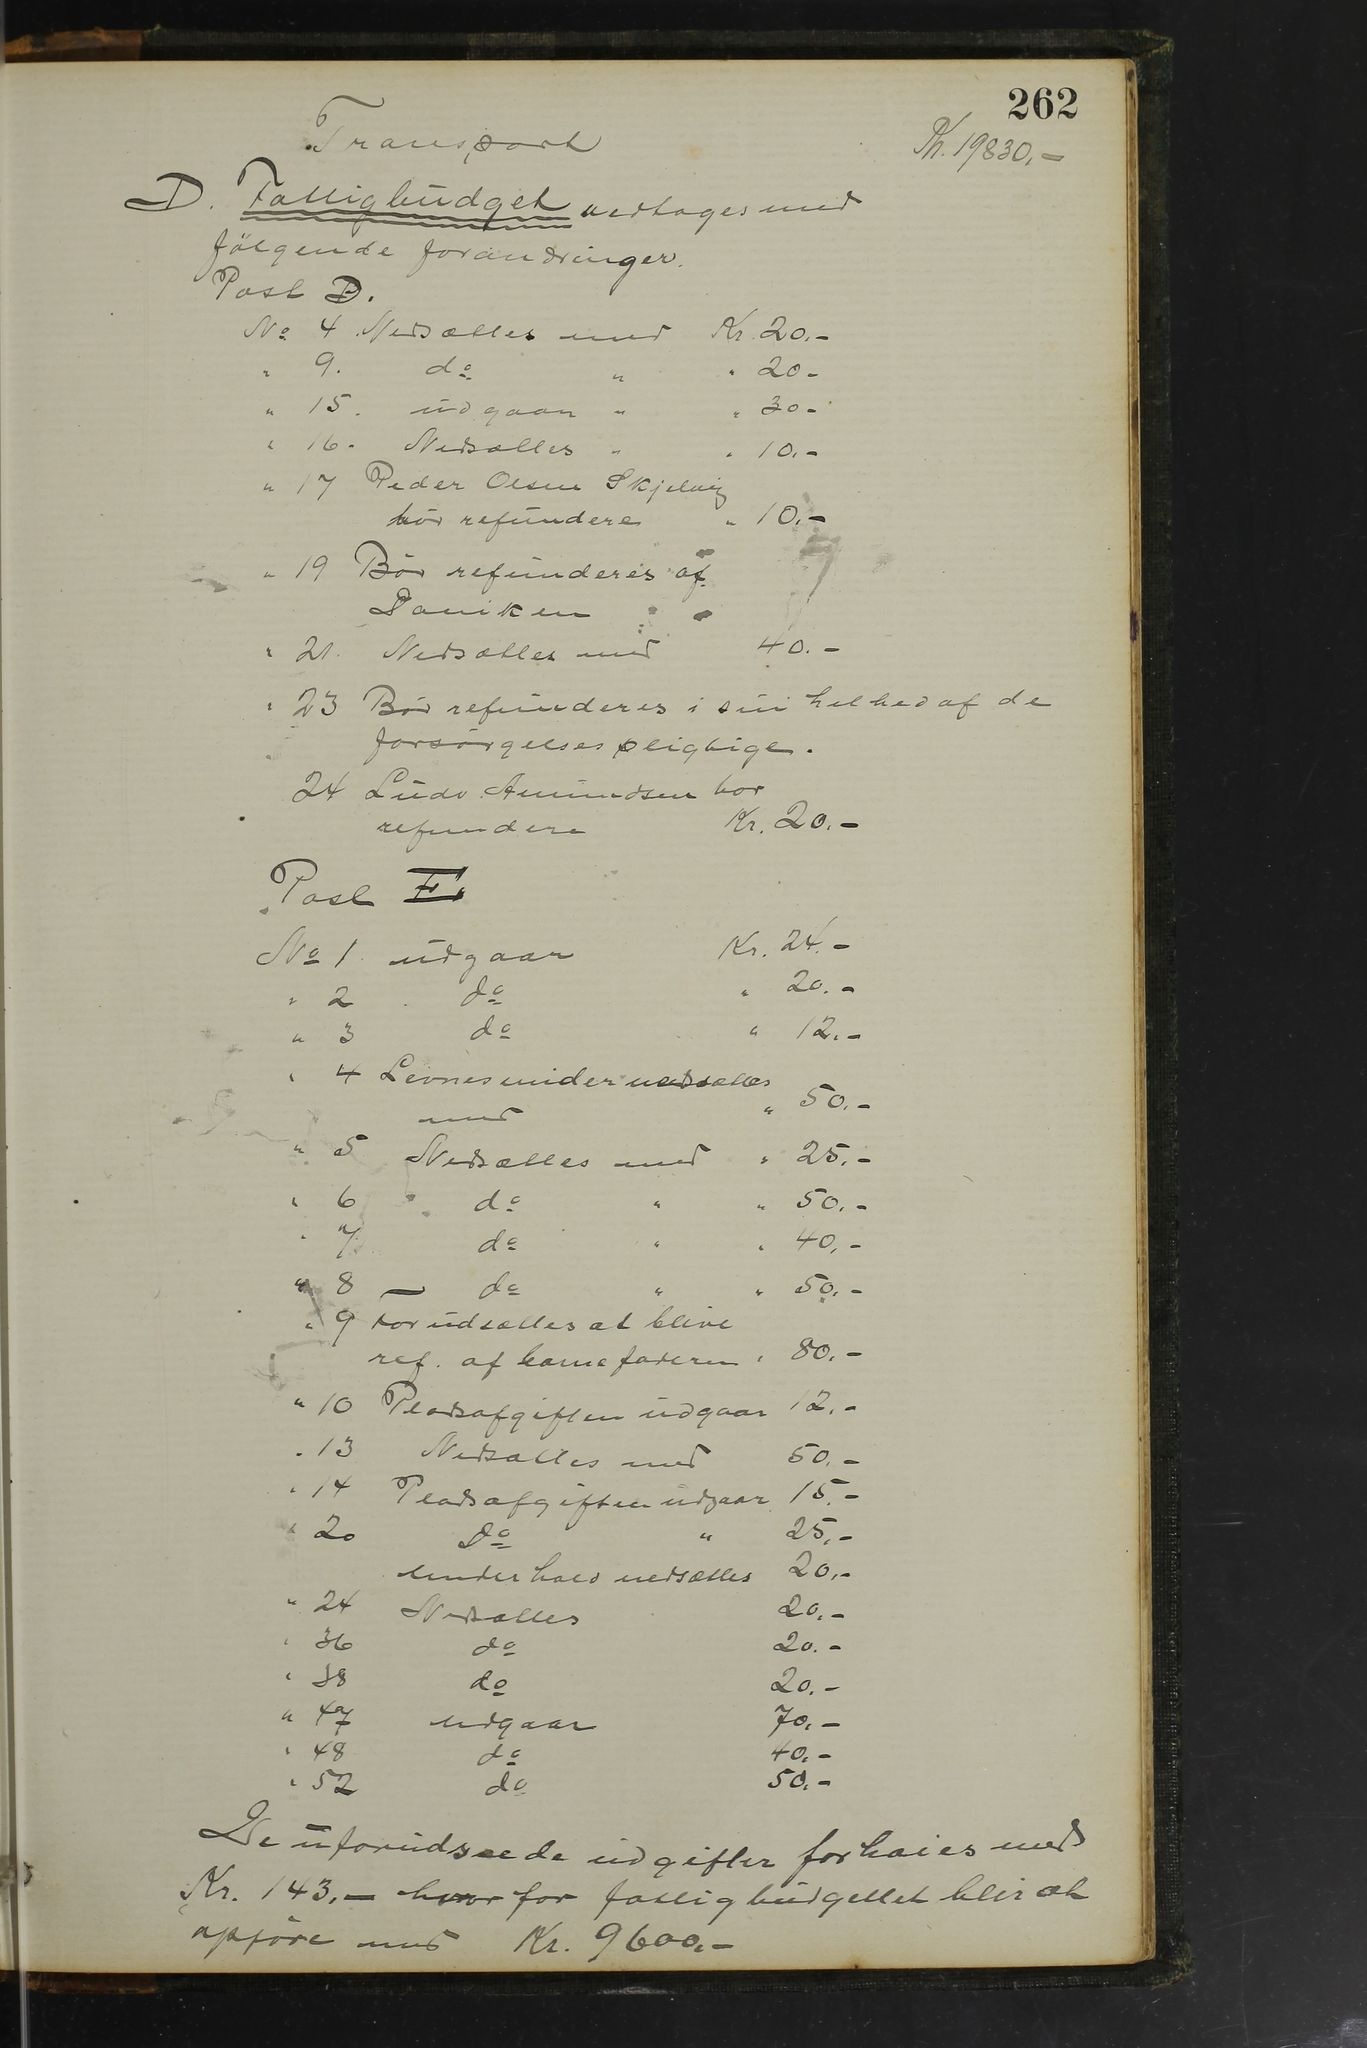 262
Transport Kr. 19830,-
D. Fattigbudget vedtages med
følgende forandringer.
Post D.
No 4 Nedsættes med Kr. 20.-
" 9. do " " 20-
" 15. udgaar " " 30-
" 16. Nedsættes " " 10.-
" 17 Peder Olsen Skjelvig
bør refundere " 10.-
" 19 Bør refunderes af
" 21. Nedsættes med 40.-
" 23 Bør refunderes i sin helhed af de
forsørgelsespligtige.
24 Ludv. Amundsen bør
refundere Kr. 20.-
Post E.
No 1 udgaar Kr. 24.-
" 2 do " 20.-
" 3 do " 12.-
" 4 Levnesmider nedsættes
med " 50.-
" 5 Nedsættes med " 25.-
" 6 " do " " 50.-
" 7 do " " 40.-
" 8 - do " " 50.-
" 9 forudsættes at blive
ref. af barnefaderen " 80.-
" 10 Pladsafgiften udgaar 12.-
" 13 Nedsættes med 50.-
" 14 Pladsafgiften udgaar 15.-
" 20 Do " 25.-
underhold nedsættes 20.-
" 24 Nedsættes 20.-
" 36 do 20.-
" 38 do 20.-
" 47 udgaar 70.-
" 48 do 40.-
" 52 do 50.-
De uforudseede udgifter forhøies med
Kr. 143,- hvorfor fattigbudgettet blir at
opføre med Kr. 9600.-